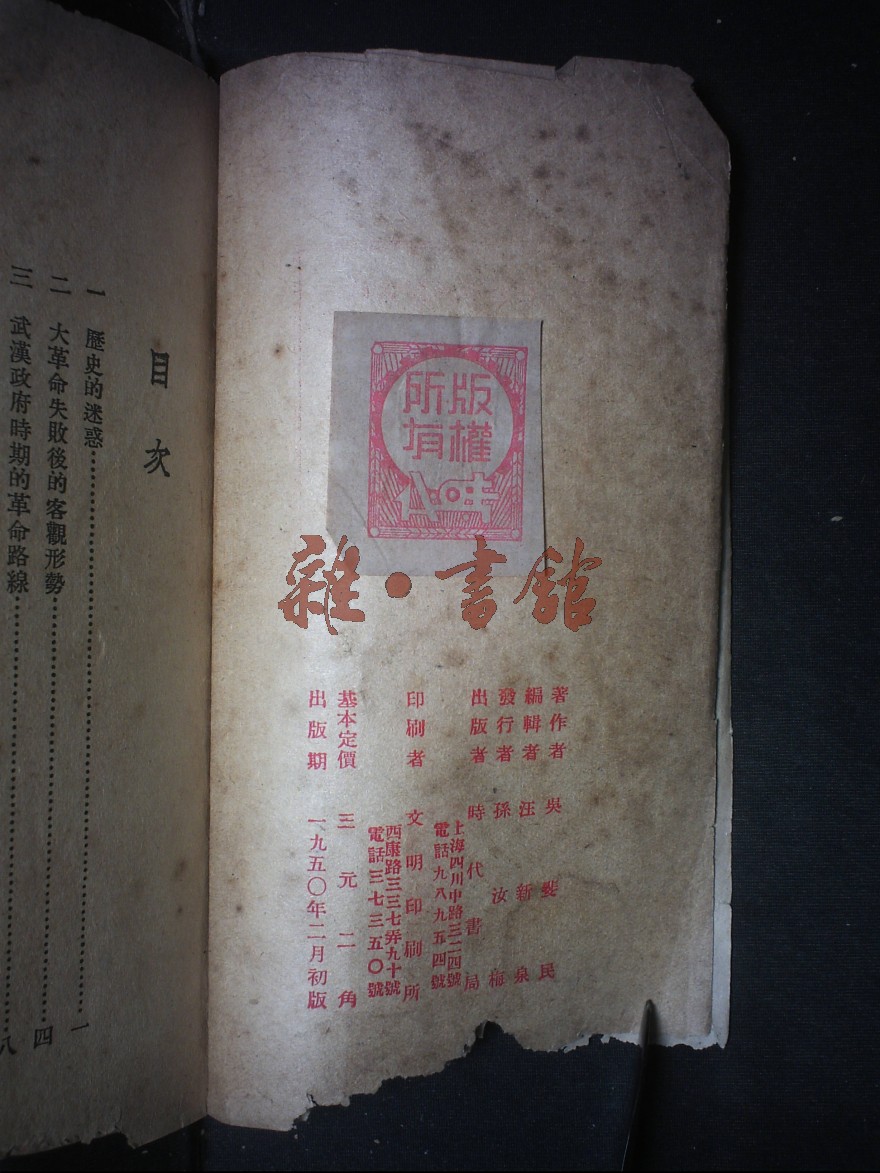 版權
所有
時代
雜·書館
著作者 吳斐民
編輯者 汪新泉
發行者 孫汝梅
出版者 時代書局
上海四川中路三二四號
電話九八九五四號
印刷者 文明印刷所
西康路三三七弄九十號
電話三七三五〇號
基本定價 三元二角
出版期 一九五〇年二月初版
目次
一 歷史的迷惑 一
二 大革命失敗後的客觀形勢 四
三 武漢政府時期的革命路線 八